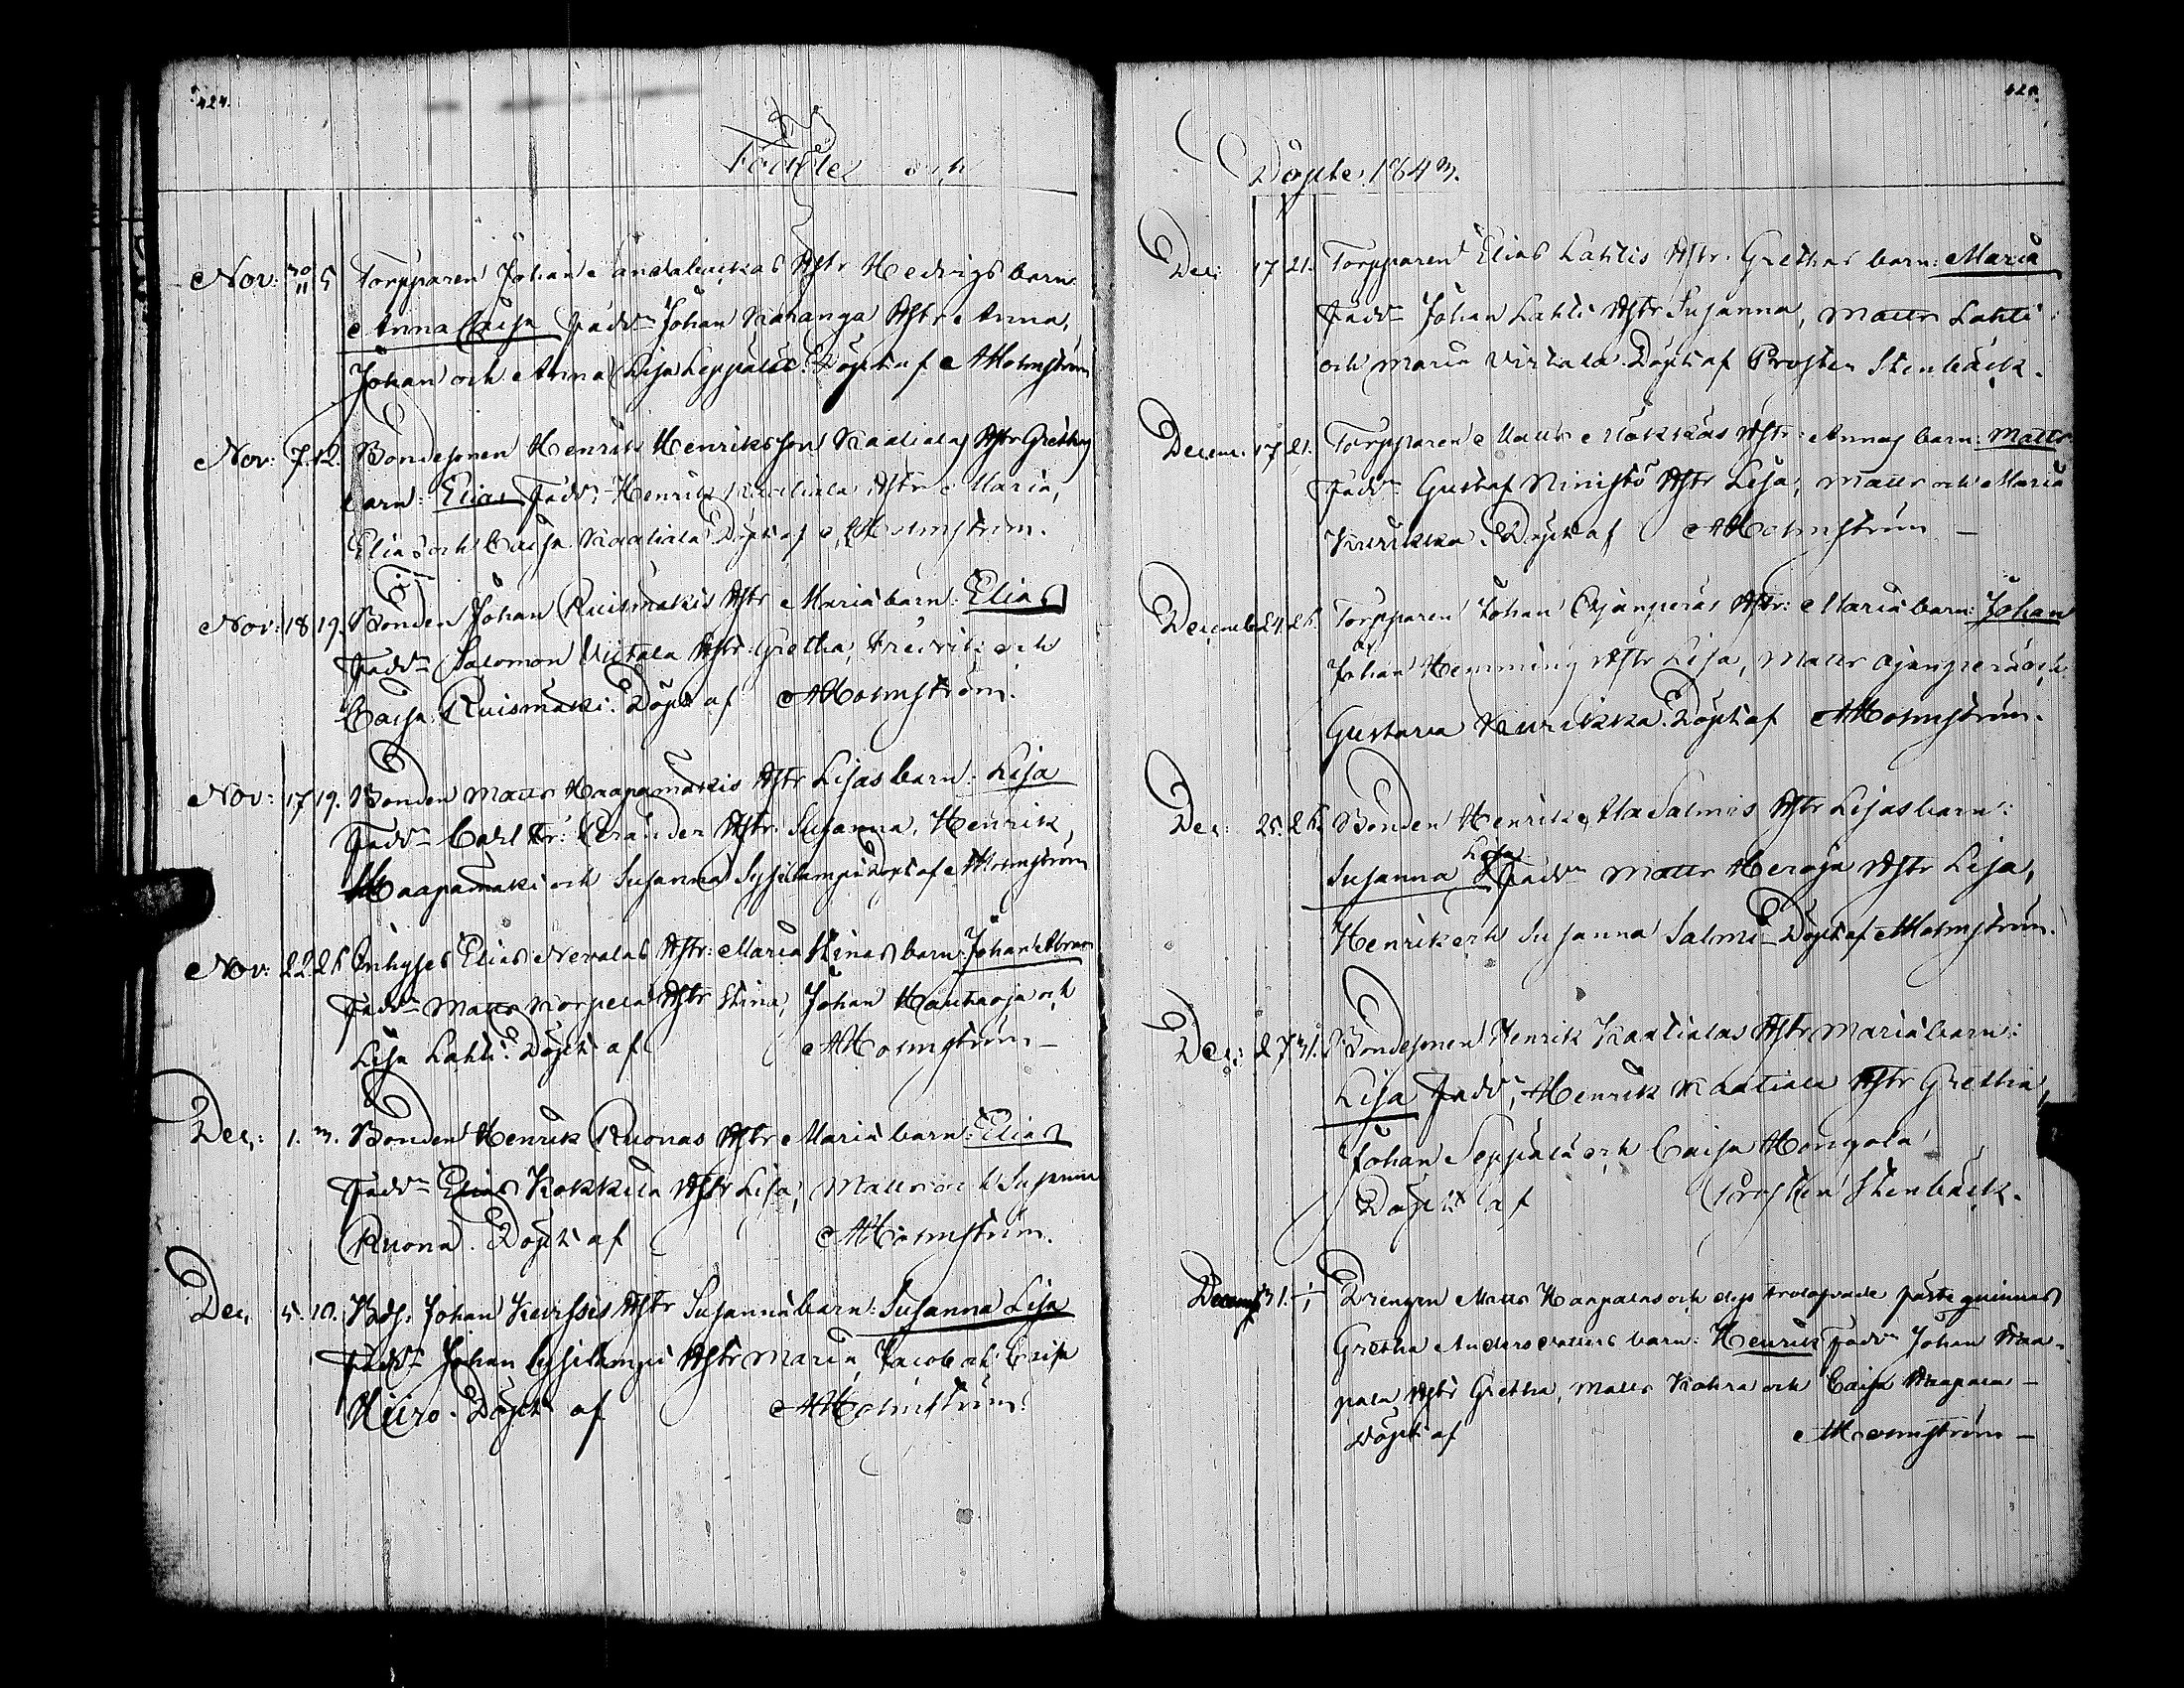 424.
Födde och
Nov: 30/11 5 Torpparen Johan andaluckas Hstr Hedvigs barn:
Anna Caisa Fadd: Johan Kahanga Hstr Anna,
Johan och Anna Lisa Leppälä. Döpt af A Holmström
Nov: 7. 12. Bondesonen Henrik Henriksson Kaatialas Hstr Grethas
barn: Elias Fadd: Henrik Kaatiala Hstr Maria,
Elias och Caisa Kaatiala Döpt af A Holmström.
Nov: 18 19. Bonden Johan Ruismäkis Hstr Mariæ barn: Elias
Fadd: Salomon Viitala Hstr Gretha, Fredrik och
Caisa Ruismäki. Döpt af A Holmström.
Nov: 17 19. Bonden Matts Haapamäkis Hstr Lisas barn: Lisa
Fadd: Carl Fr: Hstr Susanna, Henrik,
Haapamäki och Susanna Sysilampi Döpt af A Holmström
Nov: 22. 26 Inhyses Elias Nevalas Hstr: Maria Stinas barn: Johan
Fadd: Matts Korpela Hstr Stina, Johan Hautaoja och
Lisa Lahti. Döpt af A Holmström —
Dec: 1. 3. Bonden Henrik Ruonas Hstr Mariæ barn: Elias
Fadd: Elias Kokkila Hstr Lisa, Matts och Susanna
Ruona. Döpt af A Holmström.
Dec, 5. 10. Bdsn Johan Hstr Susannæ barn: Susanna Lisa
Fadd: Johan Sysilampi Hstr Maria, Jacob och Caisa
Hiiro. Döpt af A Holmström.
425.
Döpte 1843.
Dec: 17 21. Torpparen Elias Lahtis Hstr: Grethas barn: Maria
Fadd: Johan Lahti Hstr Susanna, Matts Lahti
och Maria Virtala. Döpt af Prosten Stenbäck.
Decem: 17 21. Torpparen Matts Mökkäs Hstr: Annas barn: Matts
Fadd: Gustaf Niinistö Hstr Lisa, Matts och Maria
Kurikka. Döpt af A Holmström —
Decemb 24. 26. Torpparen Johan Ojanperäs Hstr: Mariæ barn: Johan
Johan Hemming Hstr Lisa, Matts Ojanperä och
Gustava Kurikka. Döpt af A Holmström.
Dec: 25. 26. Bonden Henrik Ala Salmis Hstr Lisas barn:
Susanna Lisa Fadd: Matts Heroja Hstr Lisa,
Henrik och Susanna Salmi — Döpt af A Holmström.
Dec: 27 31. Bondesonen Henrik Kaatialas Hstr Mariæ barn:
Lisa Fadd: Henrik Kaatiala Hstr Gretha,
Johan Seppälä och Caisa Hongola
Döpt af Prosten Stenbäck.
Decemb 31. 1/1 Drengen Matts Haapalas och dess trolofvade fästeqvinnas
Gretha Andersdotters barn: Henrik Fadd: Johan Haa-
pala Hstr Gretha, Matts Kohra och Caisa Haapala —
Döpt af A Holmström —